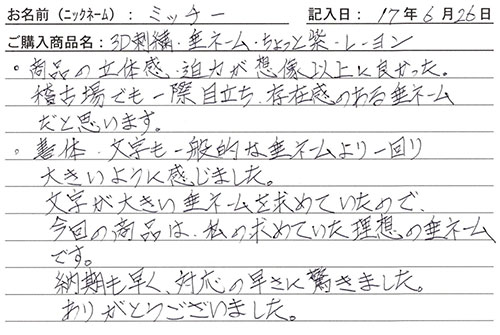 お名前（ニックネーム）： ミッチー 記入日： 17年6月26日
ご購入商品名：3D刺繍・垂ネーム・ちょっと紫・レーヨン
・商品の立体感・迫力が想像以上に良かった。
稽古場でも一際目立ち、存在感のある垂ネーム
だと思います。
・書体・文字も一般的な垂ネームより一回り
大きいように感じました。
文字が大きい垂ネームを求めていたので、
今回の商品は、私の求めていた理想の垂ネーム
です。
納期も早く、対応の早さに驚きました。
ありがとうございました。